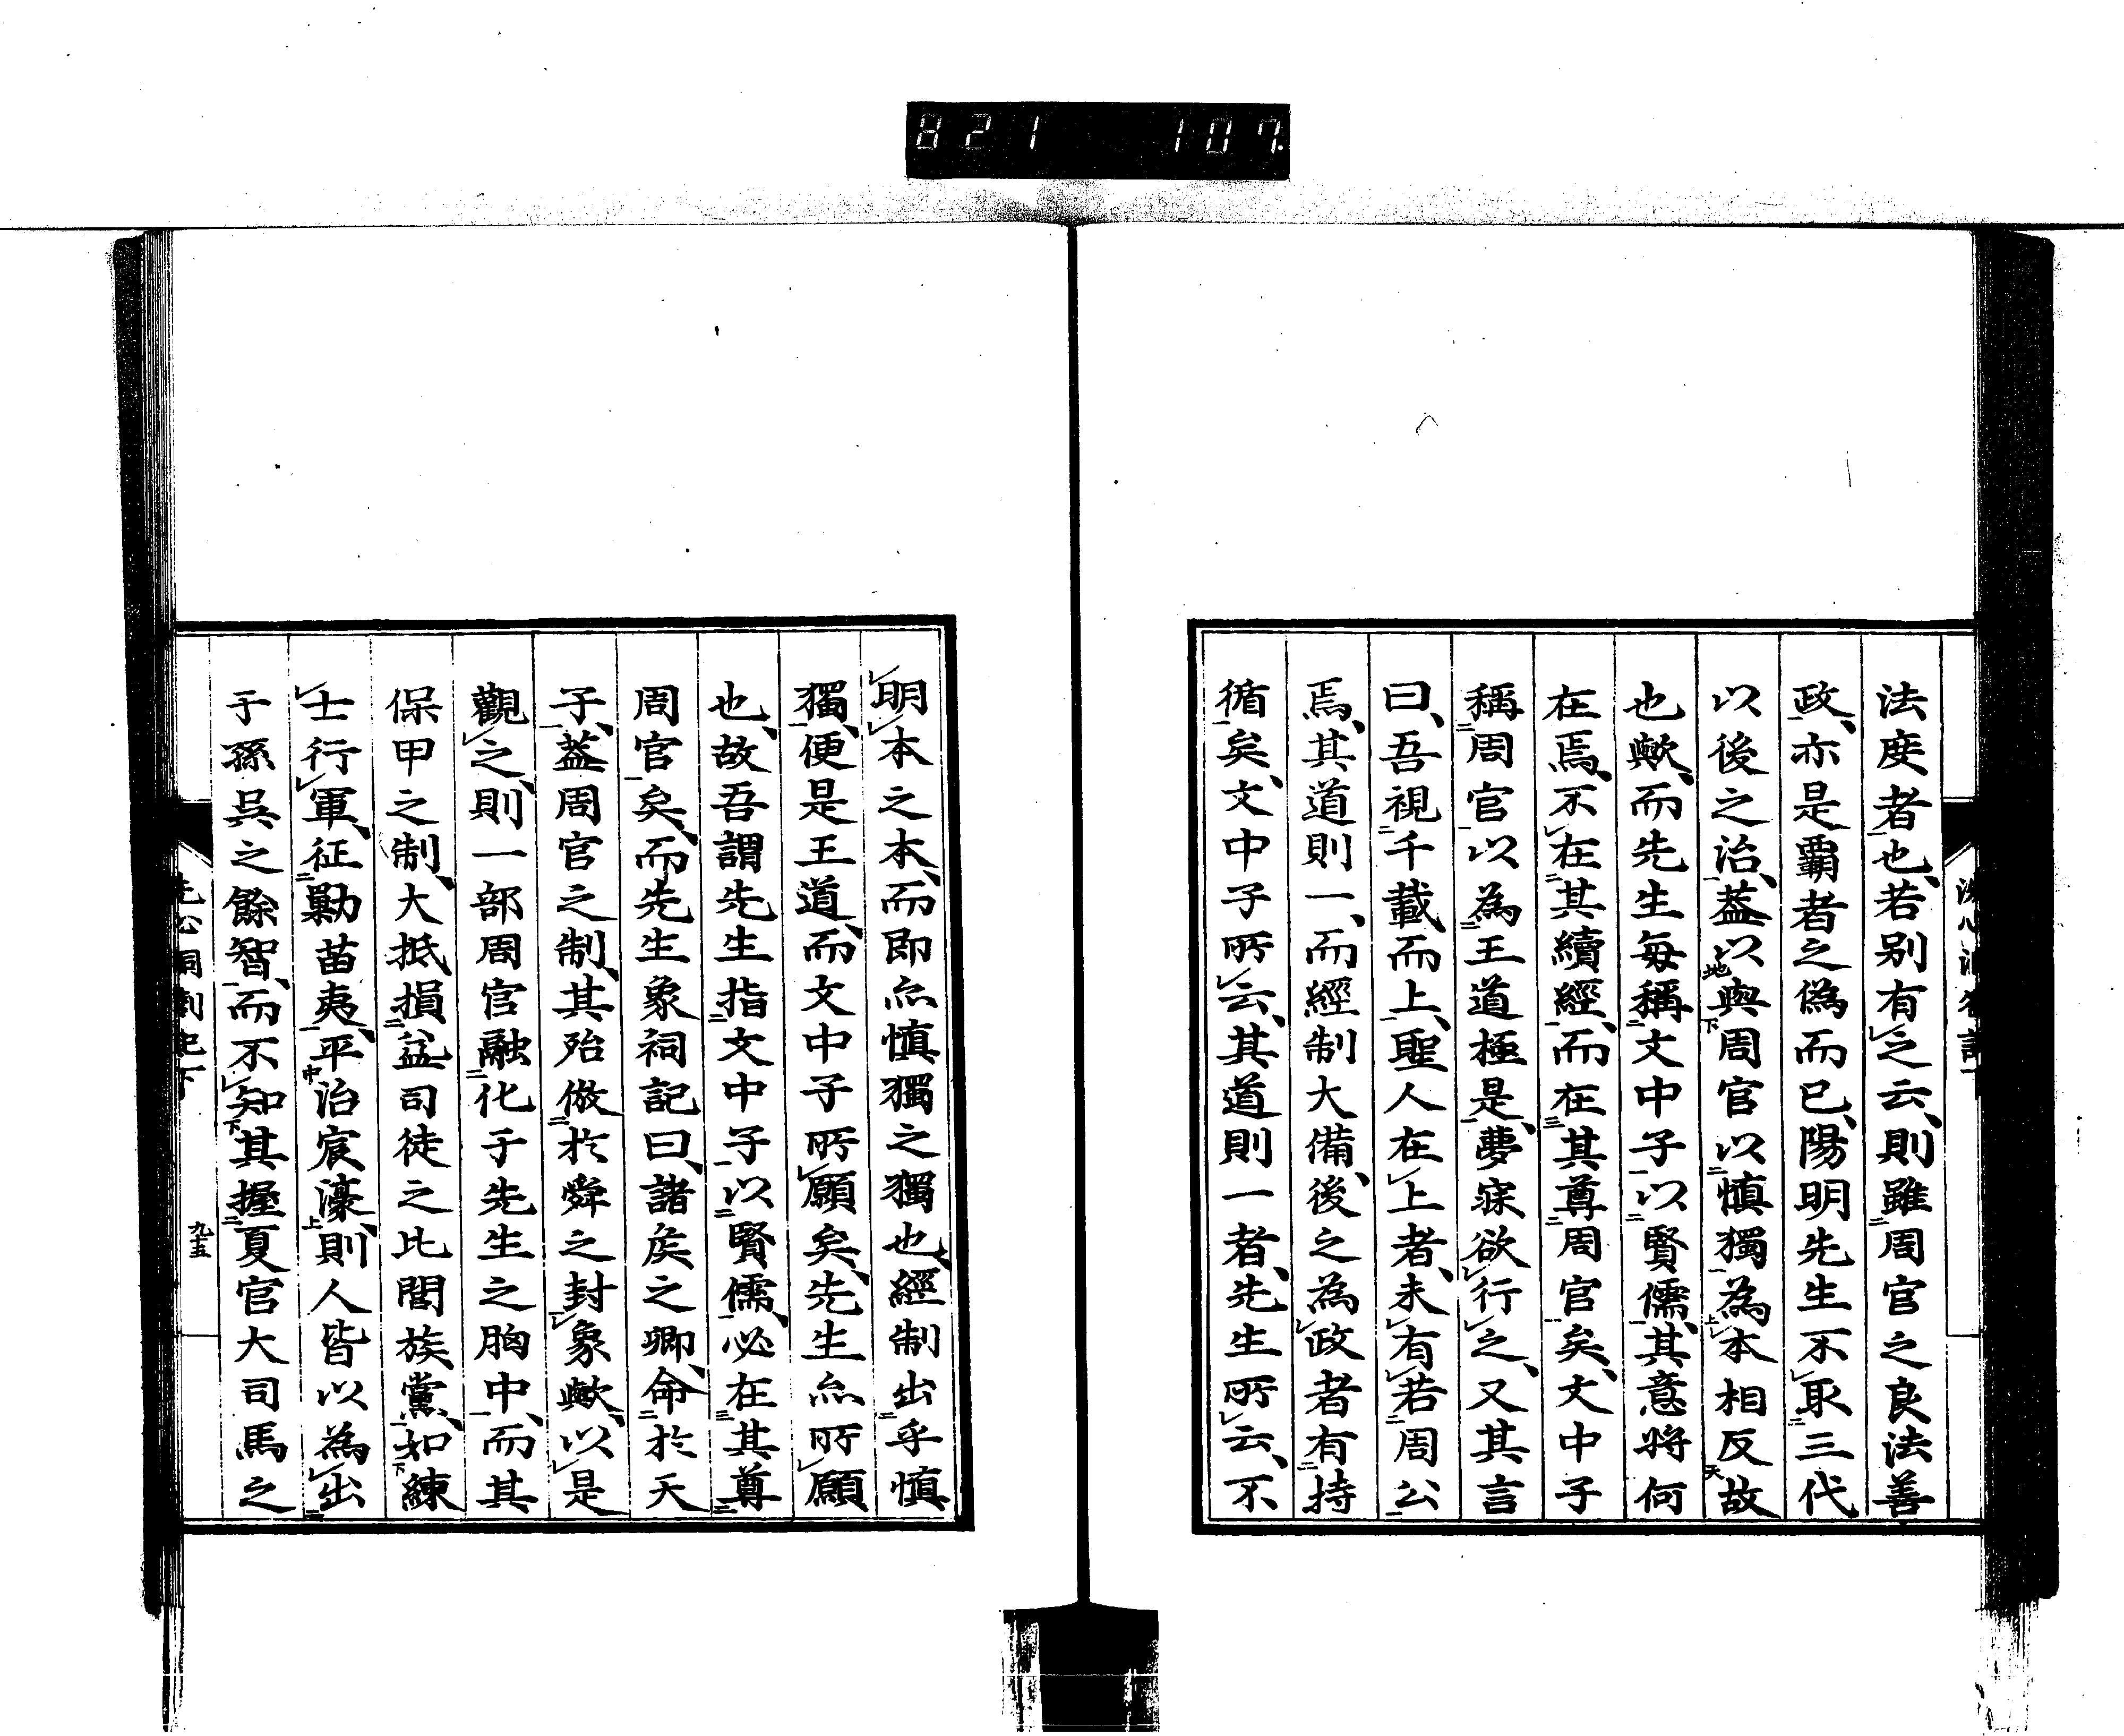 821 107
法度者也、若別有之云、則雖周官之良法善
政、亦是覇者之僞而已、陽明先生不取三代
以後之治、蓋以與周官以愼獨為本相反故
也歟、而先生每稱文中子以賢儒、其意將何
在焉、不在其續經、而在其尊周官矣、文中子
稱周官以為王道極是、夢寐欲行之、又其言
曰、吾視千載而上、聖人在上者、未有若周公
焉、其道則一、而經制大備、後之為政者有持
循矣、文中子所云、其道則一者、先生所云、不
明本之本、而即亦愼獨之獨也、經制出乎愼
獨、便是王道、而文中子所願矣、先生亦所願
也、故吾謂先生指文中子以賢儒、必在其尊
周官矣、而先生象祠記曰、諸侯之卿、命於天
子、蓋周官之制、其殆倣於舜之封象歟、以是
觀之、則一部周官融化于先生之胸中、而其
保甲之制、大抵損益司徒之比閭族黨、如練
士行軍、征勦苗夷、平治宸濠、則人皆以為出
于孫吳之餘智、而不知其握夏官大司馬之
九五